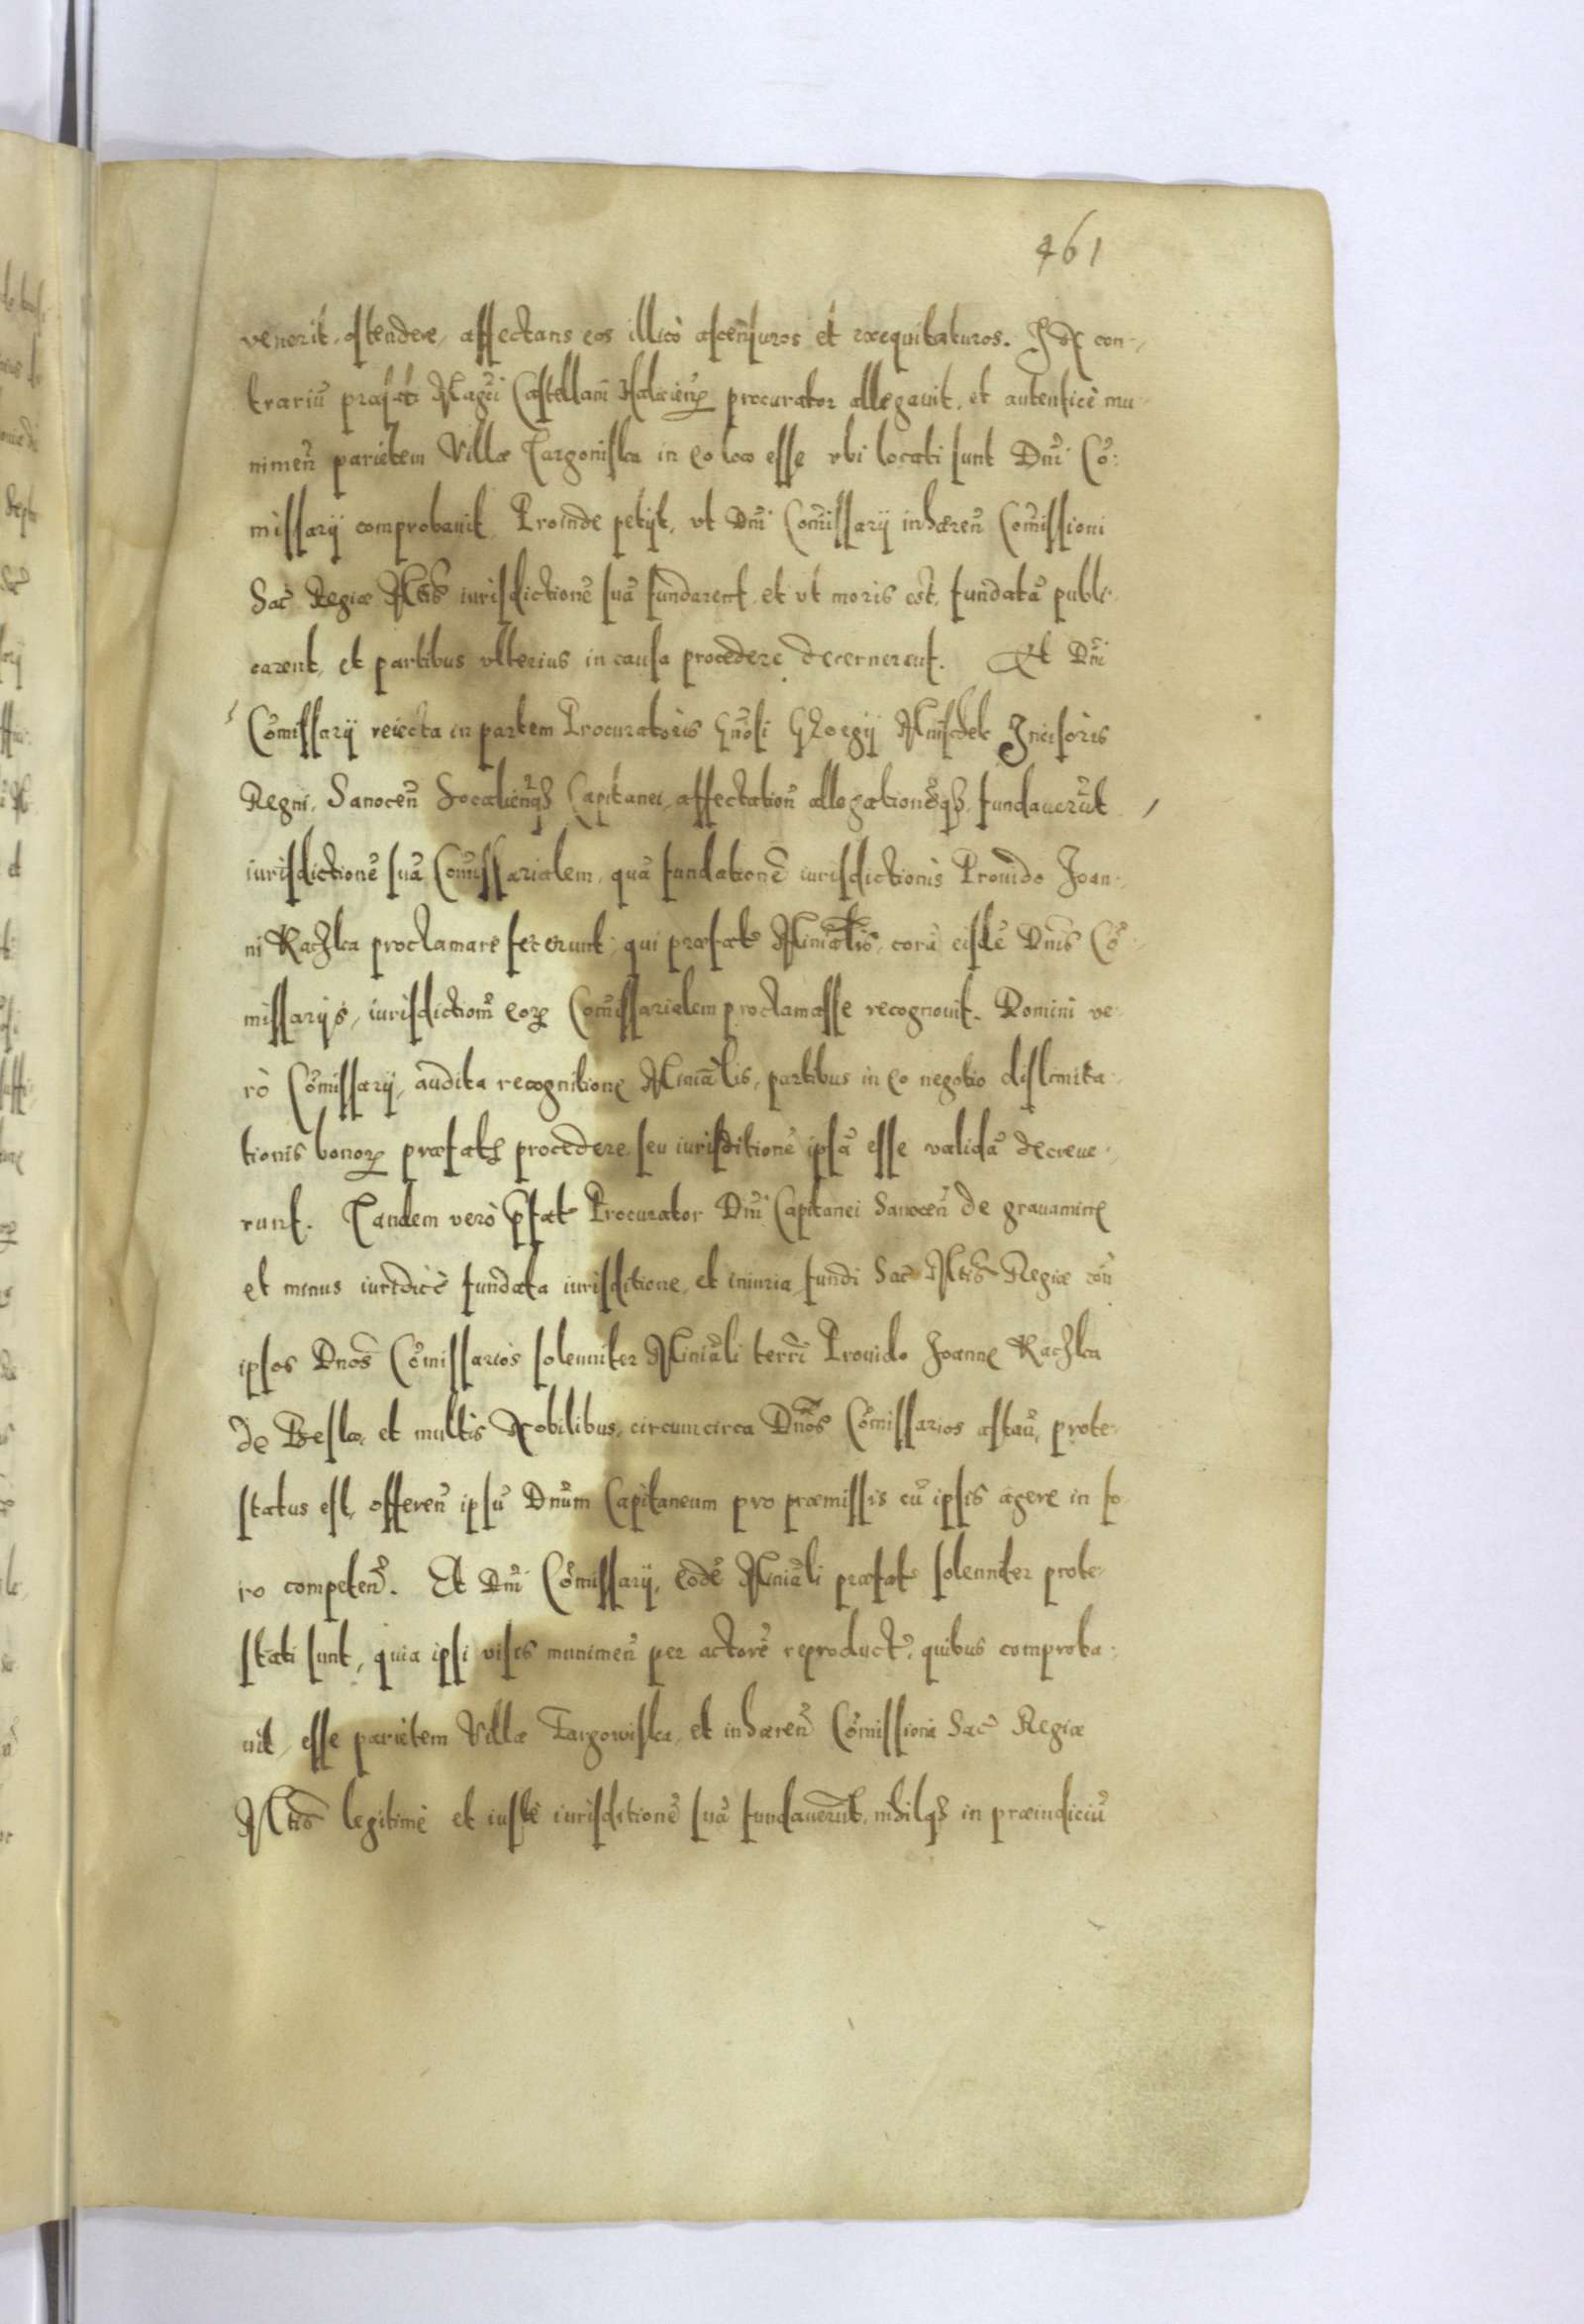 461
venerit, ostendere, affectans eos illicò ascensuros et exequitaturos. In con-
trariũ præfati Magci Castellani Haliciens procurator allegavit, et autenticè mu-
nimen̄ parietem Villæ Targowiska in eo loco esse vbi locati sunt Dnĩ Cõ-
missarij comprobauit. Proinde petijt, vt Dnĩ Com̃issarij inhæren̄ Com̃issioni
Sac̄ Regiæ Mtis iurisdictionẽ suã fundarent, et vt moris est, fundatã publi-
carent, et partibus vlterius in causa procedere decernerent. Et Dnĩ
Cõmissarij reiecta in partem Procuratoris Gnosi Georgij Mniszek Incisoris
Regni, Sanocen̄ Socalienqȝ Capitanei, affectation̄ allegationẽqȝ, fundauerũt
iurisdictionẽ suã Com̃issarialem, quã fundationẽ iurisdictionis Prouido Joan-
ni Raczka proclamare fecerunt, qui præfat Minĩalis, corã eisdẽ Dnis Cõ-
missarijs, iurisdictionẽ eoꝝ Com̃issarialem proclamasse recognouit. Domini ve-
rò Cõmissarij, audita recognitione Minĩalis, partibus in eo negotio dislimita-
tionis bonoꝝ præfatꝝ procedere, seu iurisditionẽ ipsã esse validã decreue-
runt. Tandem verò p̃fat Procurator Dnĩ Capitanei Sanocen̄ de grauamine
et minus iuridicè fundata iurisditione, et iniuria fundi Sac̄ Mtis Regiæ con̄
ipsos Dnos Cõmissarios solenniter Miniãli terrĩ Prouido Joanne Raczka
de Besko, et multis Nobilibus, circumcirca Dnõs Cõmissarios astan̄, prote-
status est, offeren̄ ipsũ Dnũm Capitaneum pro præmissis cũ ipsis agere in fo-
ro competen̄. Et Dnĩ Cõmissarij, eodẽ Miniãli præfat solenniter prote-
stati sunt, quia ipsi visis munimen̄ per actorẽ reproduct, quibus comproba-
uit, esse parietem Villæ Targowiska, et inhæren̄ Cõmissioni Sac̄ Regiæ
Mtis legitimè et iustè iurisditionẽ suã fundauerũt, nihilqȝ in præiudiciũ